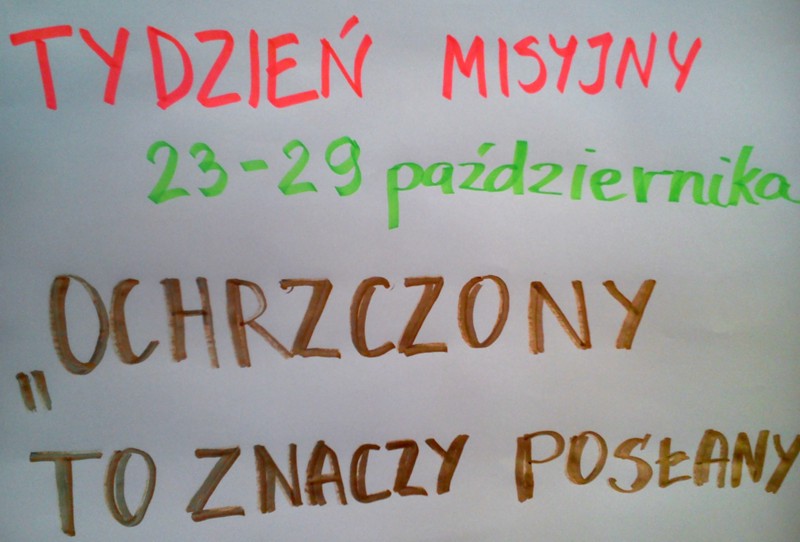 TYDZIEŃ MISYJNY
23-29 października
„OCHRZCZONY
TO ZNACZY POSŁANY